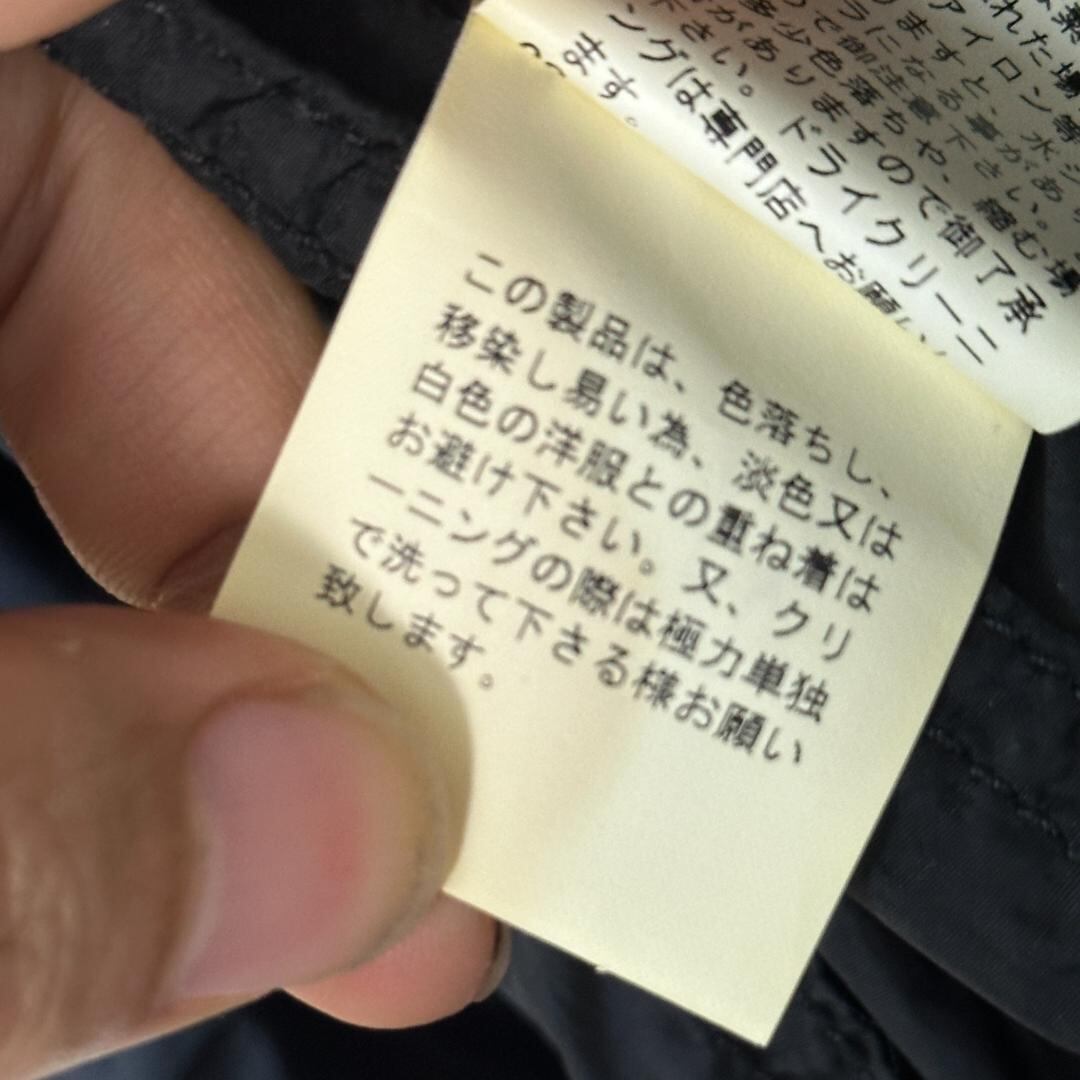 れた場
アイロン等
ますと、水シ
うになる事があり
で御注意下さい。
多少色落ちや、縮む場
がありますので御了承
下さい。ドライクリーニ
ングは専門店へお願い
ます。
この製品は、色落ちし、
移染し易い為、淡色又は
白色の洋服との重ね着は
お避け下さい。又、クリ
ーニングの際は極力単独
で洗って下さる様お願い
致します。